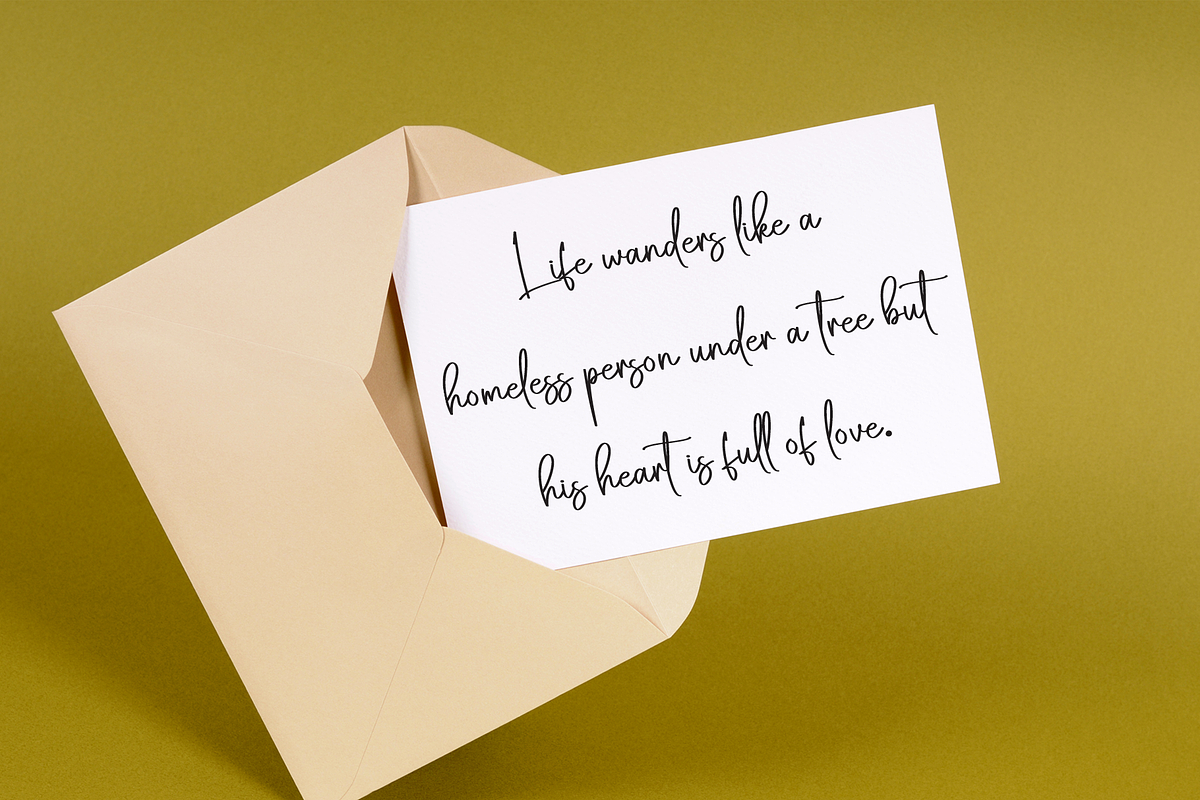 Life wanders like a
homeless person under a tree but
his heart is full of love.